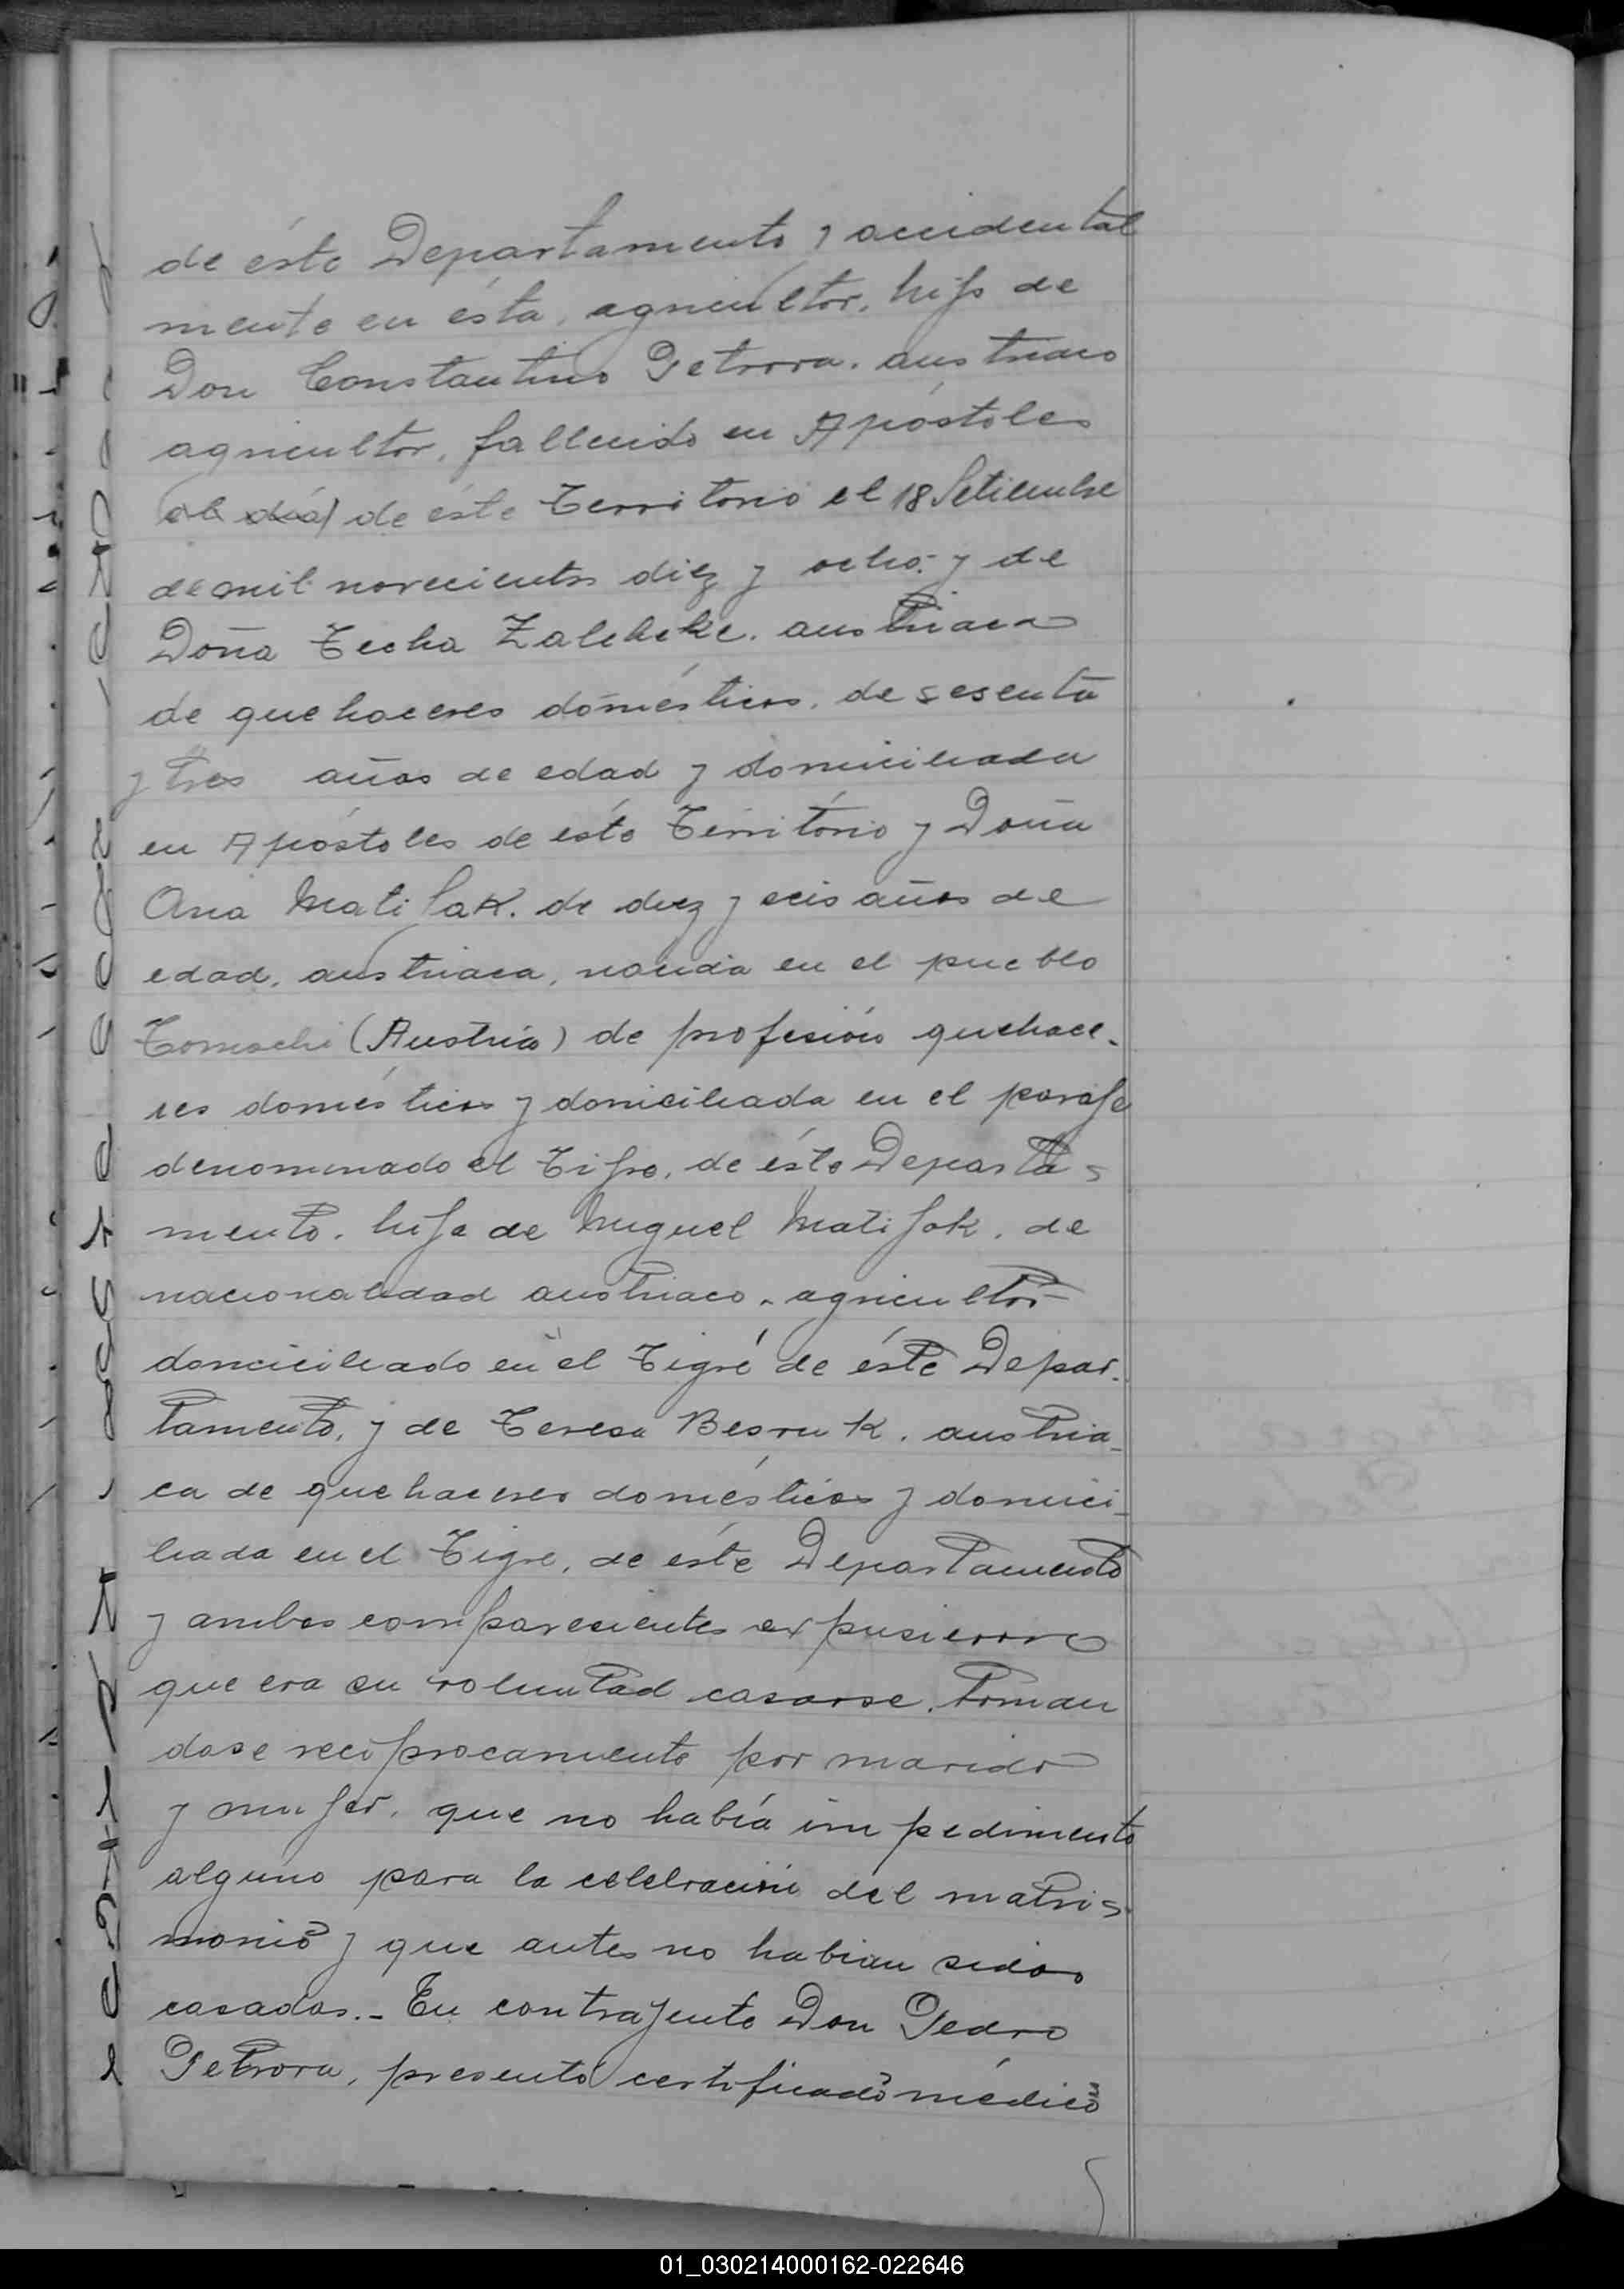 de éste Departamento y accidental
mente en ésta, agricultor, hijo de
Don Constantino Petrova, austriaco
agricultor, fallecido en Apóstoles
de éste Territorio el 18 Setiembre
de mil novecientos diez y ocho y de
Doña Techa Zaleheke, austriaca
de quehaceres domésticos, de sesenta
y tres años de edad y domiciliada
en Apóstoles de este Territorio y Doña
Ana Matijak, de diez y seis años de
edad, austriaca, nacida en el pueblo
(Austria) de profesión quehace-
res domésticos y domiciliada en el paraje
denominado el Tigre, de éste Departa-
mento, hija de Miguel Matijak, de
nacionalidad austriaco, agricultor
domiciliado en el Tigre de éste Depar-
tamento, y de Teresa Besruk, austria-
ca de quehaceres domésticos y domici-
liada en el Tigre, de éste Departamento
y ambos comparecientes expusieron
que era su voluntad casarse, toman
dose reciprocamente por marido
y mujer, que no había impedimento
alguno para la celebración del matri-
monio y que antes no habian sidos
casados.- En contrajente Don Pedro
Petrova, presentó certificado médico
01_030214000162-022646